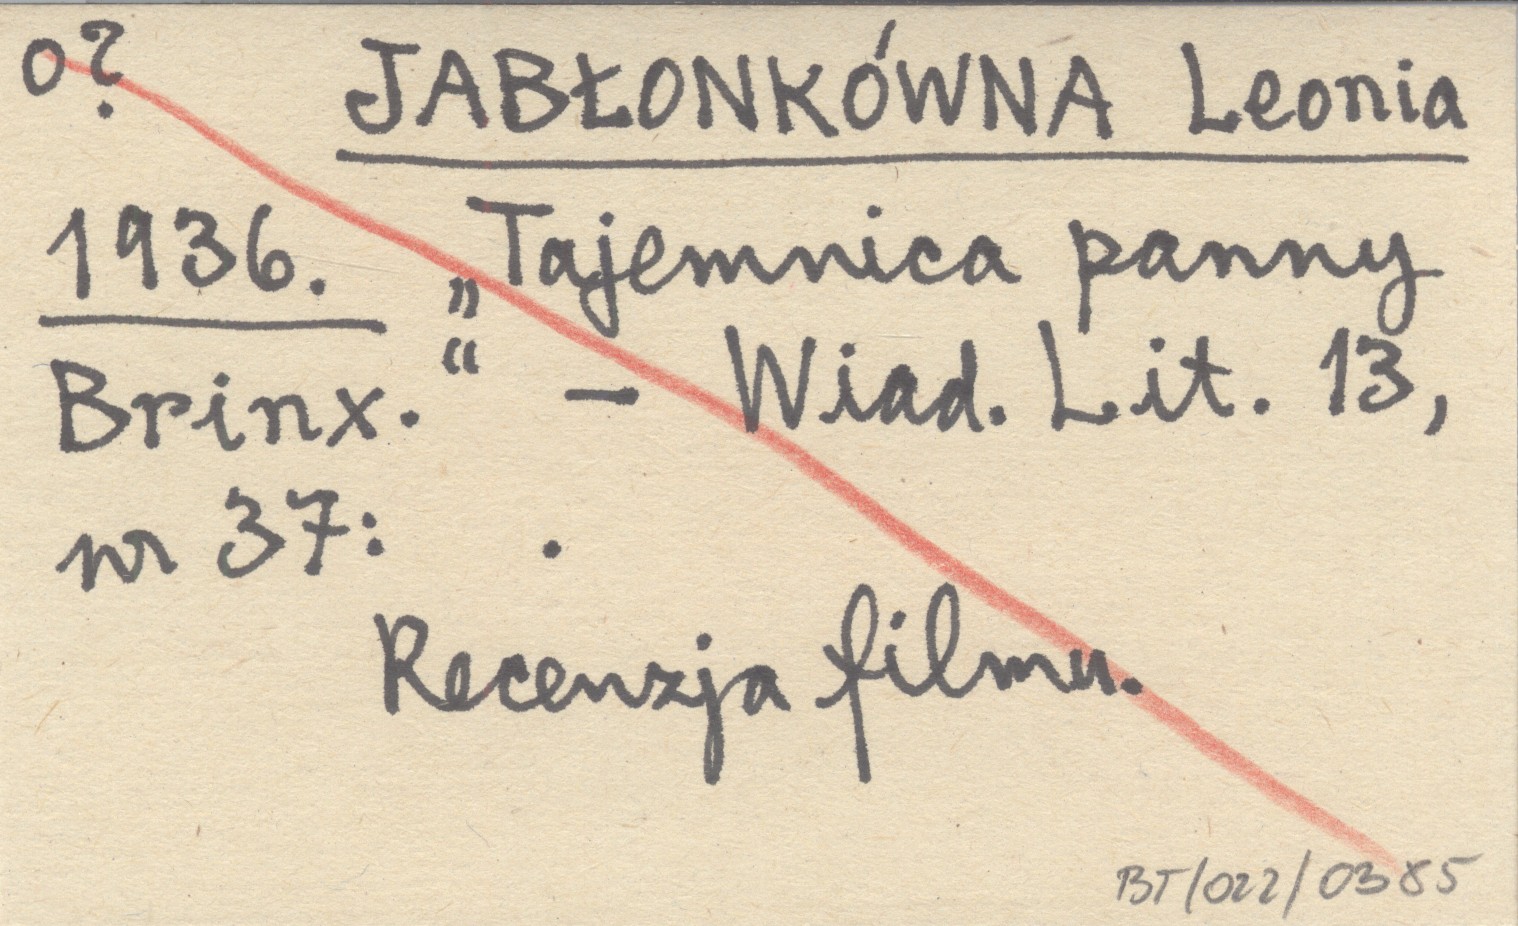 o? JABŁONKÓWNA Leonia
1936. „Tajemnica panny
Brinx.“ – Wiad. Lit. 13,
nr 37: .
Recenzja filmu.
BT/022/0385